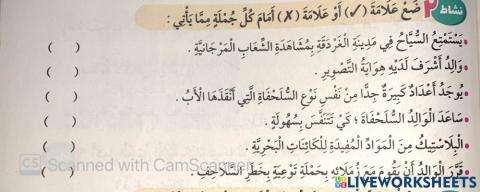 نشاط ٢ ضَعْ عَلَامَةَ (✓) أَوْ عَلَامَةَ (✗) أَمَامَ كُلِّ جُمْلَةٍ مِمَّا يَأْتِي :
• يَسْتَمْتِعُ السُّيَّاحُ فِي مَدِينَةِ الْغَرْدَقَةِ بِمُشَاهَدَةِ الشِّعَابِ الْمَرْجَانِيَّةِ . ( )
• وَالِدُ أَشْرَفَ لَدَيْهِ هِوَايَةُ التَّصْوِيرِ . ( )
• يُوجَدُ أَعْدَادٌ كَبِيرَةٌ جِدًّا مِنْ نَفْسِ نَوْعِ السُّلَحْفَاةِ الَّتِي أَنْقَذَهَا الْأَبُ . ( )
• سَاعَدَ الْوَالِدُ السُّلَحْفَاةَ ؛ كَيْ تَتَنَفَّسَ بِسُهُولَةٍ . ( )
• الْبِلَاسْتِيكُ مِنَ الْمَوَادِّ الْمُفِيدَةِ لِلْكَائِنَاتِ الْبَحْرِيَّةِ . ( )
CS Scanned with CamScanner
• قَرَّرَ الْوَالِدُ أَنْ يَقُومَ مَعَ زُمَلَائِهِ بِحَمْلَةِ تَوْعِيَةٍ بِخَطَرِ السَّلَاحِفِ . ( )
LIVEWORKSHEETS